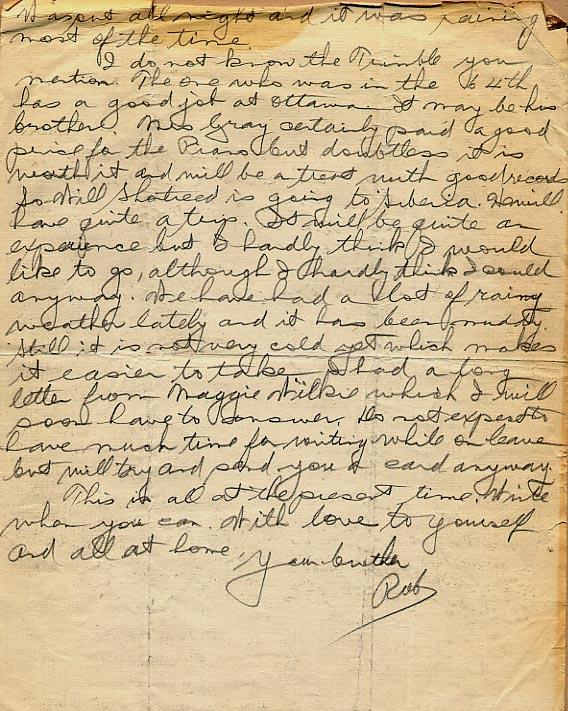 Was out all night and it was raining
most of the time.
I do not know the Trimble you
mention. The one who was in the 64th
has a good job at Ottawa. It may be his
brother. Mrs Gray certainly paid a good
price for the Piano but doubtless it is
worth it and will be a treat with good records
So Will Shotreed is going to Siberia. He will
have quite a trip. It will be quite an
experience but I hardly think I would
like to go, although I hardly think I could
anyway. We have had a lot of rainy
weather lately and it has been muddy.
Still it is not very cold yet which makes
it easier to take. I had a long
letter from Maggie Wilkie which I will
soon have to answer. Do not expect to
have much time for writing while on leave
but will try and send you a card anyway.
This is all at the present time. Write
when you can. With love to yourself
and all at home,
Your brother
Rob